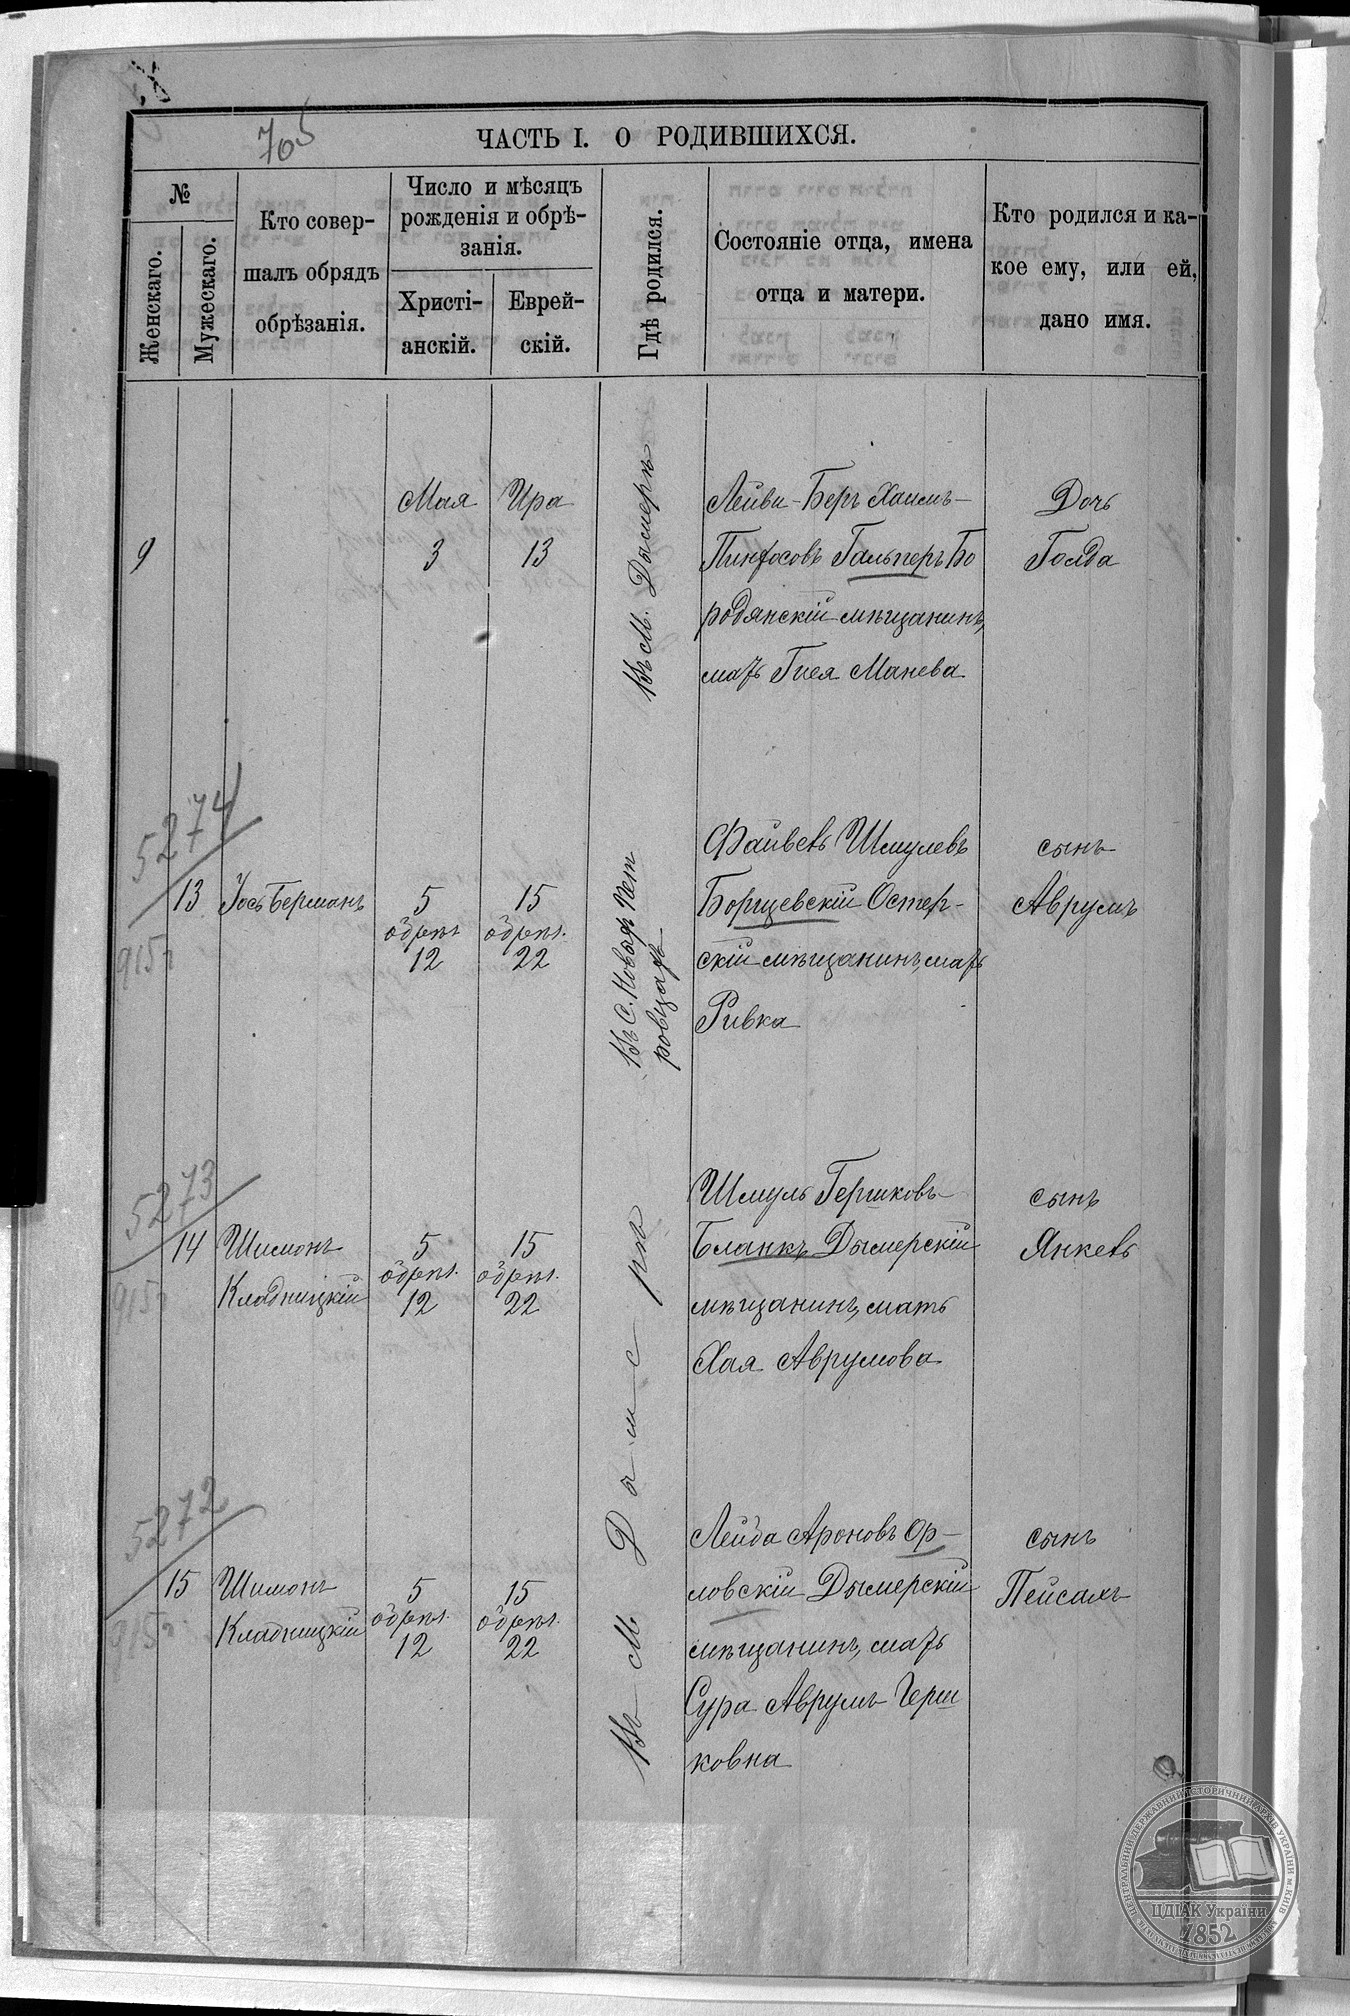 705
ЧАСТЬ I. О РОДИВШИХСЯ.
№
Женскаго.
Мужескаго.
Кто совер-
шалъ обрядъ
обрѣзанія.
Число и мѣсяцъ
рожденія и обрѣ-
занія.
Христі-
анскій.
Еврей-
скій.
Гдѣ родился.
Состояніе отца, имена
отца и матери.
Кто родился и ка-
кое ему, или ей,
дано имя.
9
Мая
3
Ира
13
Въ М. Дымерѣ
Лейви-Беръ Хаимъ-
Пинхосовъ Гальперъ Бо
родянскій мѣщанинъ,
мать Гися Манева
Дочь
Голда
5274
915
13
Іось Берманъ
5
обрѣз.
12
15
обрѣз.
22
Въ С. Новых Пет
ровцахъ
Файвель Шмулевъ
Борщевскій Остер-
скій мѣщанинъ, мать
Ривка
сынъ
Аврумъ
5273
915
14
Шимонъ
Кладницкій
5
обрѣз.
12
15
обрѣз.
22
Въ М Дымерѣ
Шмуль Гершковъ
Бланкъ Дымерскій
мѣщанинъ, мать
Хая Аврумова
сынъ
Янкель
5272
915
15
Шимонъ
Кладницкій
5
обрѣз.
12
15
обрѣз.
22
Лейба Ароновъ Ор-
ловскій Дымерскій
мѣщанинъ, мать
Сура Аврумъ Герш
ковна
сынъ
Пейсахъ
ЦЕНТРАЛЬНИЙ ДЕРЖАВНИЙ ІСТОРИЧНИЙ АРХІВ УКРАЇНИ М. КИЇВ
ЦДІАК України
1852